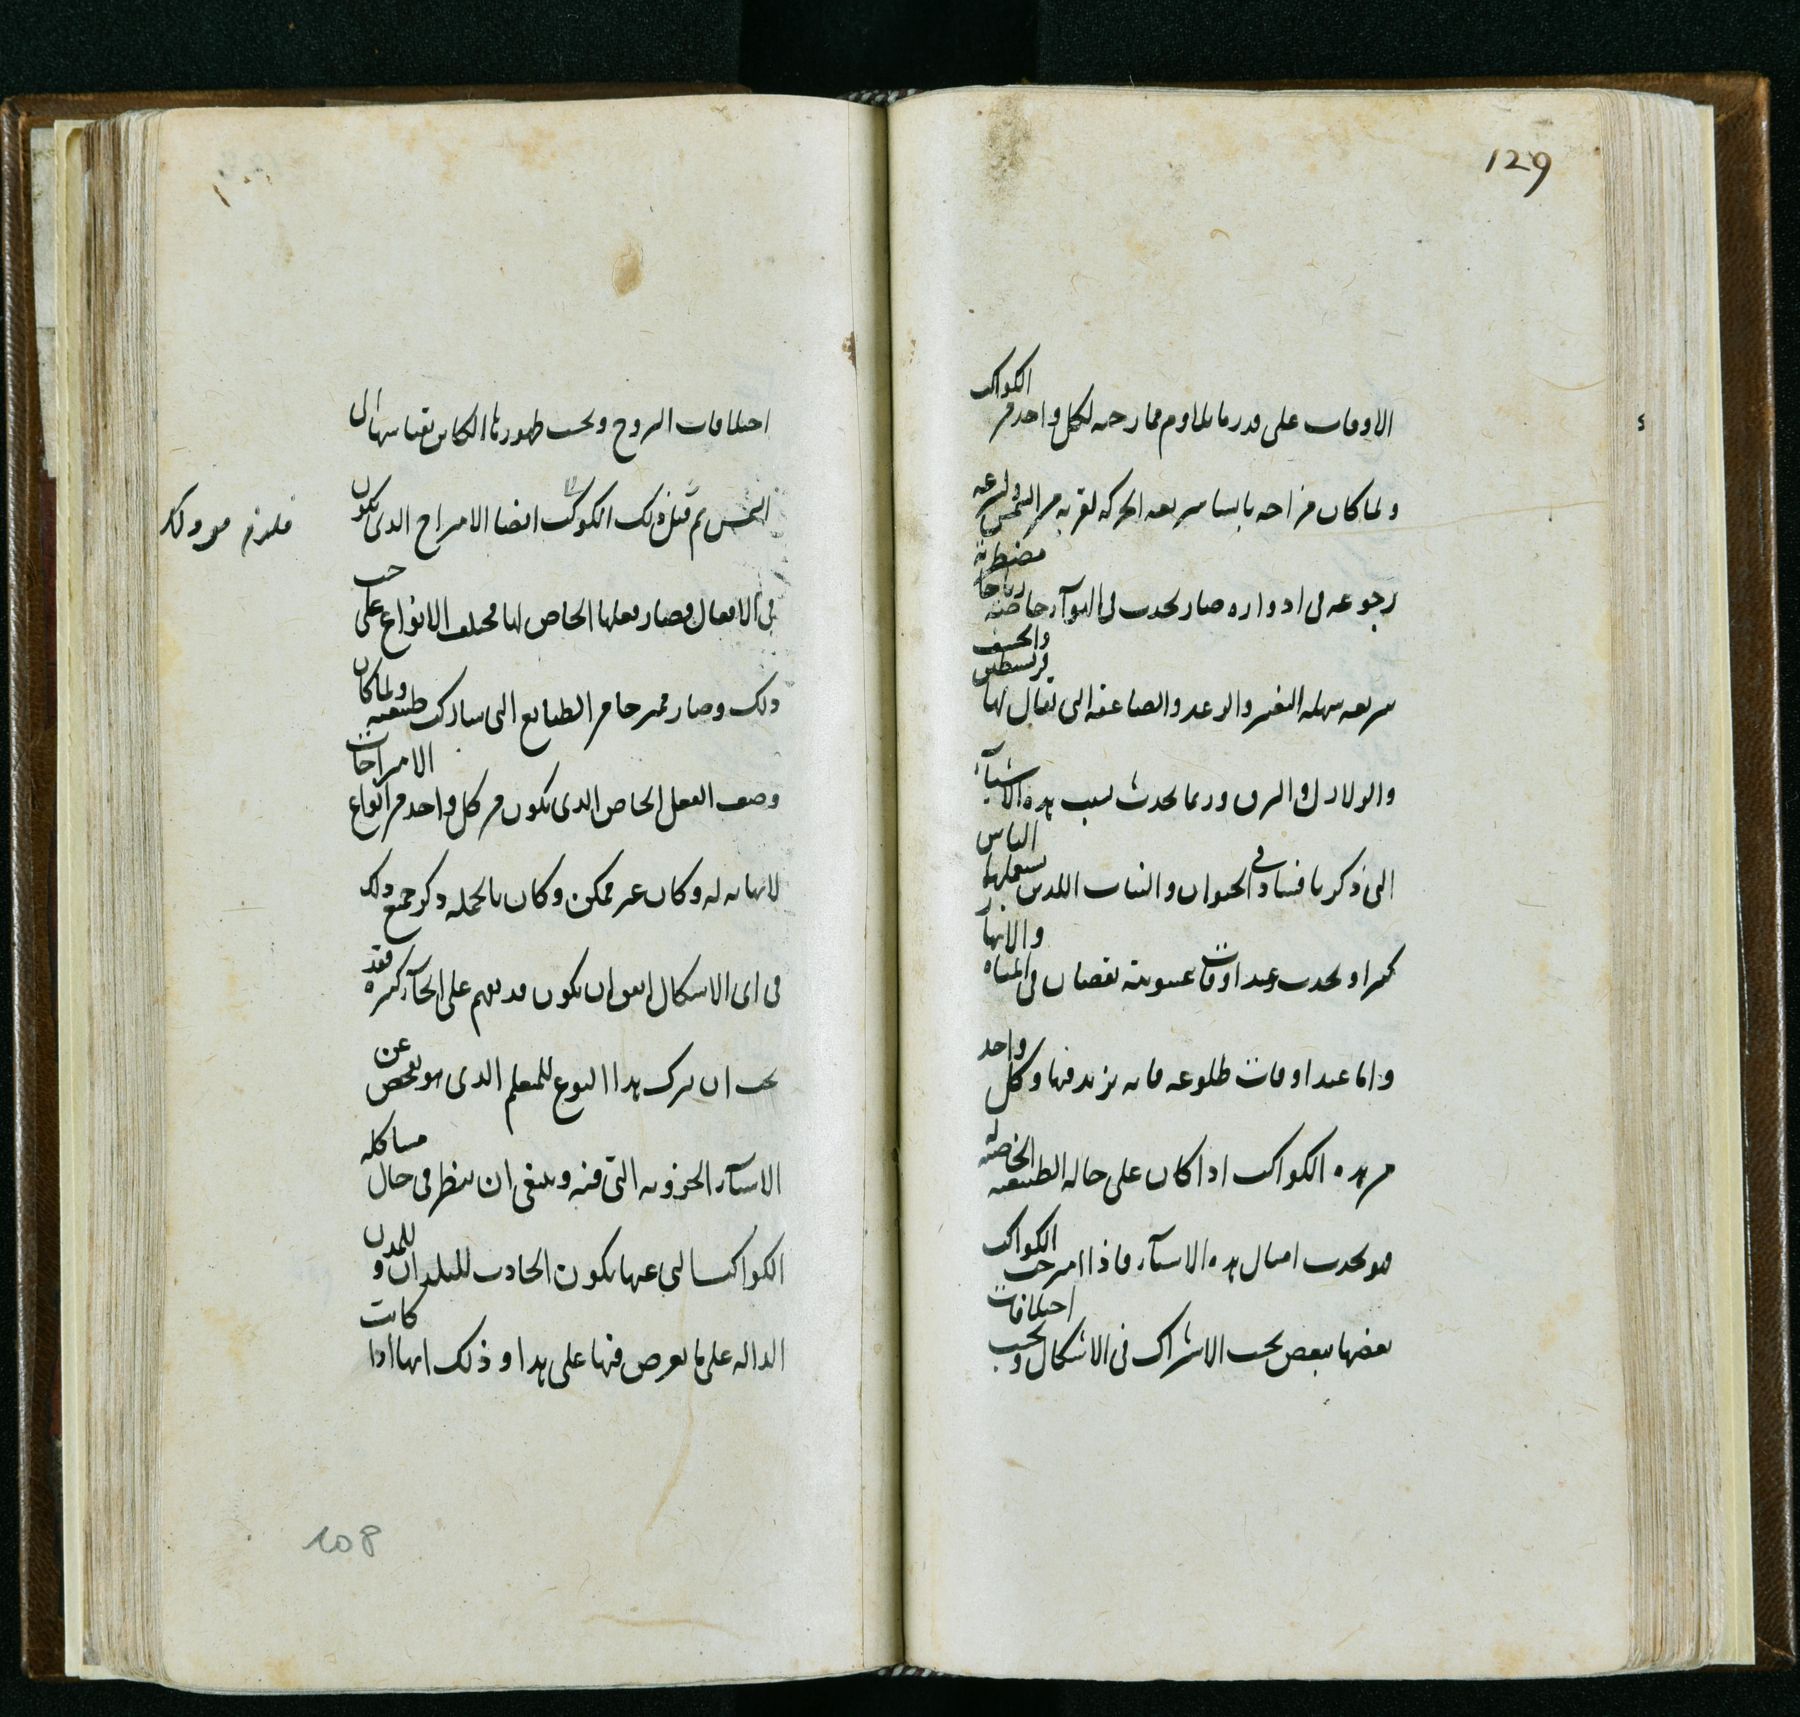 129
الاوقات على قدر ما يلاوم ممازجه لكل واحد من الكواكب
ولما كان مزاجه يابسا سريعه الحركه لقربه من الشمس ولسرعه
رجوعه فى ادواره صار يحدث فى الهوآء خاصة رياحا مضطربة
سريعه سهله التغير والرعد والصاعقه التى يقال لها فرسطس والخسف
والزلازل والبرق وربما يحدث بسبب هذه الاشيآء
التى ذكرنا فسادا فى الحيوان والنبات اللذين يستعملهما الناس
كثيرا ويحدث عند اوقات عشويته نقصان فى المياه والانهار
واما عند اوقات طلوعه فانه يزيد فيها وكل واحد
من هذه الكواكب اذا كان على حاله الطبيعيه الخاصة له
فهو يحدث امثال هذه الاشيآء فاذا امتزجت الكواكب
بعضها ببعض بحسب الاشتراك فى الاشكال وبحسب اختلافات
اختلافات البروج وبحسب ظهوراتها الكائن بقياسها الى
الشمس ثم قبل ذلك الكوكب ايضا الامتزاج الذى يكون
فى الافعال فصار فعلها الخاص لها مختلف الانواع على حسب
ذلك وصار ممتزجا من الطبايع التى شاركت طبيعته ولما كان
وصف الفعل الخاص الذى يكون من كل واحد من انواع الامتزاجات
لانهايه له وكان غير ممكن وكان بالجمله ذكر جميع ذلك
فى اى الاشكال اتفق ان يكون قد يفهم على انحآء كثيره فقد
يجب ان يترك هذا النوع للمعلم الذى هو يفحص عن
الاشيآء الجزويه التى فيه وينبغى ان ينظر فى حال مشاكله
الكواكب التى عنها يكون الحادث للبلدان و للمدن
الداله على ما يعرض فيها على هذا وذلك انها اذا كانت
108